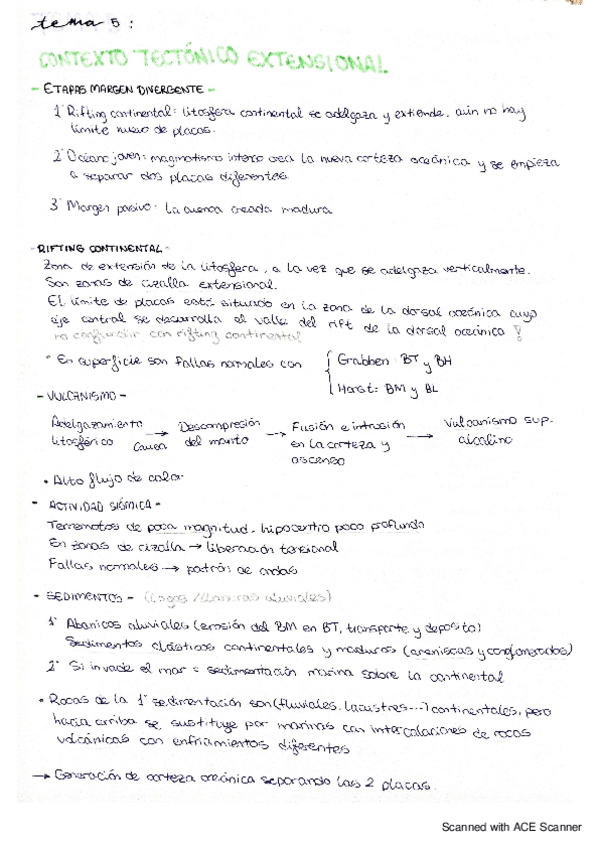 tema 5:
CONTEXTO TECTÓNICO EXTENSIONAL
- ETAPAS MARGEN DIVERGENTE -
1º Rifting continental: litosfera continental se adelgaza y extiende, aún no hay
límite nuevo de placas.
2º Océano joven: magmatismo intenso crea la nueva corteza oceánica y se empieza
a separar dos placas diferentes.
3º Margen pasivo: La cuenca creada madura
- RIFTING CONTINENTAL -
Zona de extensión de la litosfera, a la vez que se adelgaza verticalmente.
Son zonas de cizalla extensional.
El límite de placas está situado en la zona de la dorsal oceánica cuyo
eje central se desarrolla el valle del rift de la dorsal oceánica !
no confundir con rifting continental
• En superficie son fallas normales con { Grabben: BT y BH
Horst: BM y BL
- VULCANISMO -
Adelgazamiento litosférico → Causa Descompresión del manto → Fusión e intrusión en la corteza y ascenso → Vulcanismo sup. alcalino
• Alto flujo de calor
- ACTIVIDAD SÍSMICA -
Terremotos de poca magnitud, hipocentro poco profundo
En zonas de cizalla → liberación torsional
Fallas normales → patrón de ondas
- SEDIMENTOS - (Lagos / aluviales)
1º Abanicos aluviales (erosión del BM en BT, transporte y deposito)
Sedimentos clásticos continentales y maduros (areniscas y conglomerados)
2º Si invade el mar = sedimentación marina sobre la continental
• Rocas de la 1ª sedimentación son (fluviales, lacustres...) continentales, pero
hacia arriba se sustituye por marinas con intercalaciones de rocas
volcánicas con enfriamientos diferentes
→ Generación de corteza oceánica separando las 2 placas.
Scanned with ACE Scanner